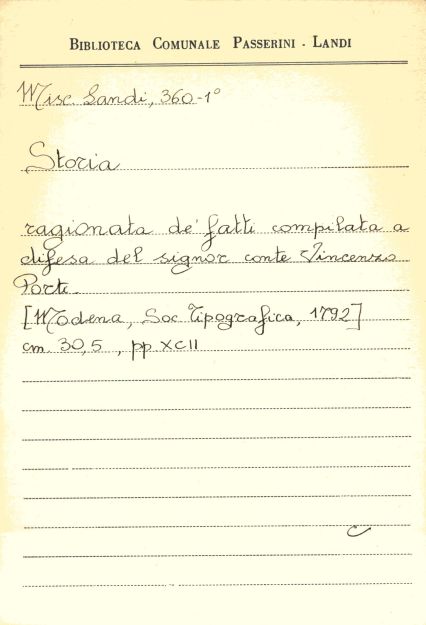 BIBLIOTECA COMUNALE PASSERINI - LANDI
Misc. Landi, 360-1°
Storia
ragionata de' fatti compilata a
difesa del signor conte Vincenzo
Porti.
[Modena, Soc. Tipografica, 1792]
cm. 30,5, pp XCII